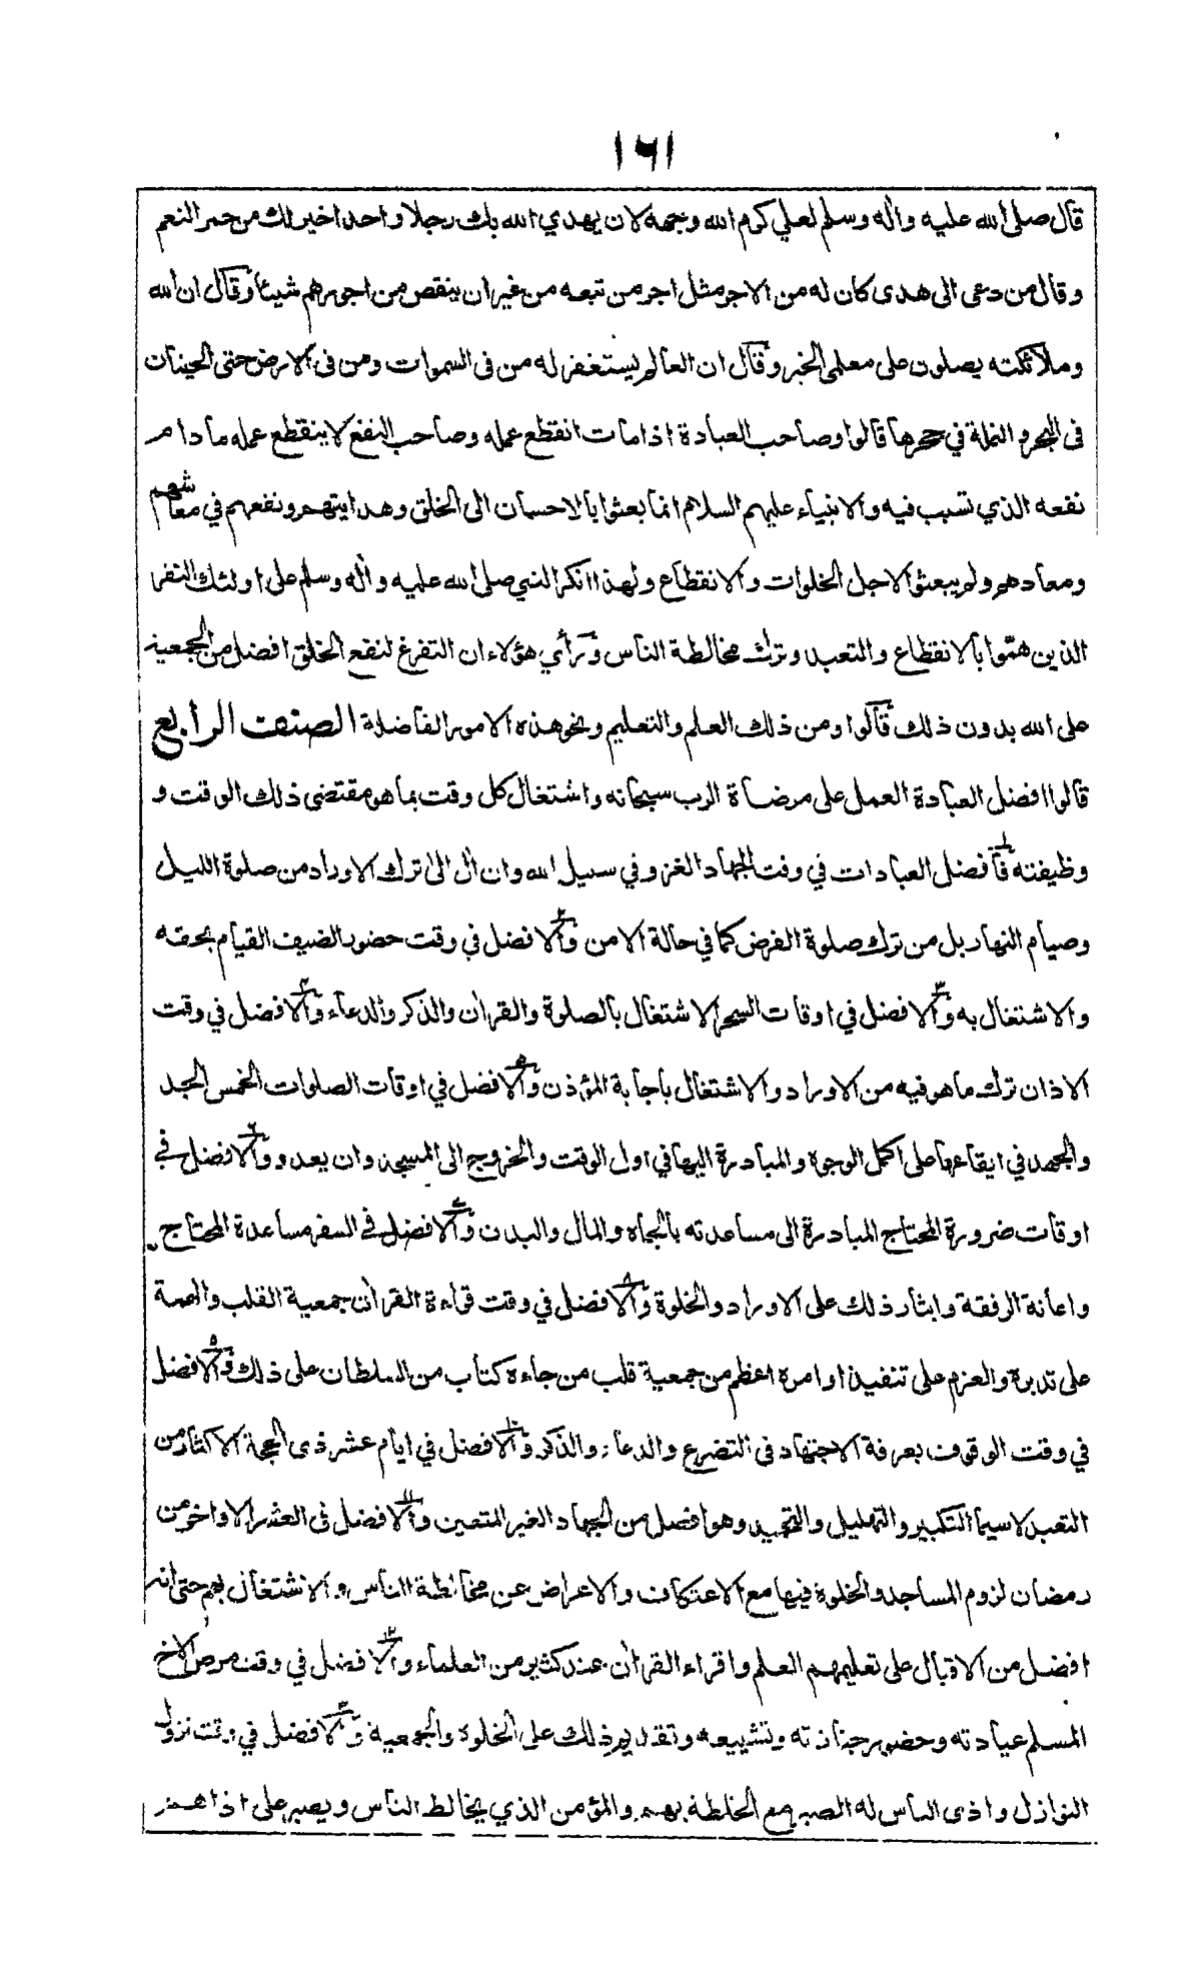 ١٦١
قال صلى الله عليه واله وسلم لعلي كرم الله وجهه لان يهدي الله بك رجلا واحدا خير لك من حمر النعم
وقال من دعى الى هدى كان له من الاجر مثل اجور من تبعه من غير ان ينقص من اجورهم شيئا وقال ان الله
وملائكته يصلون على معلمي الخير وقال ان العالم يستغفر له من في السموات ومن في الارض حتى الحيتان
في البحر والنملة في جحرها قالوا وصاحب العبادة اذا مات انقطع عمله وصاحب النفع لا ينقطع عمله ما دام
نفعه الذي تسبب فيه والانبياء عليهم السلام انما بعثوا بالاحسان الى الخلق وهدايتهم ونفعهم في معاشهم
ومعادهم ولم يبعثوا لاجل الخلوات والانقطاع ولهذا انكر النبي صلى الله عليه واله وسلم على اولئك النفر
الذين همّوا بالانقطاع والتعبد وترك مخالطة الناس ورأي هؤلاء ان التفرغ لنفع الخلق افضل من الجمعية
على الله بدون ذلك قالوا ومن ذلك العلم والتعليم ونحو هذه الامور الفاضلة الصنف الرابع
قالوا افضل العبادة العمل على مرضاة الرب سبحانه واشتغال كل وقت بما هو مقتضى ذلك الوقت و
وظيفته فافضل العبادات في وقت الجهاد الغزو في سبيل الله وان آل الى ترك الاوراد من صلوة الليل
وصيام النهار بل من ترك صلوة الفرض كما في حالة الامن ٢ والافضل في وقت حضور الضيف القيام بحقه
والاشتغال به ٣ والافضل في اوقات السحر الاشتغال بالصلوة والقران والذكر والدعاء ٤ والافضل في وقت
الاذان ترك ما هو فيه من الاوراد والاشتغال باجابة المؤذن ٥ والافضل في اوقات الصلوات الخمس الجد
والجهد في ايقاعها على اكمل الوجوه والمبادرة اليها في اول الوقت والخروج الى المسجد وان بعد ٦ والافضل في
اوقات ضرورة المحتاج المبادرة الى مساعدته بالجاه والمال والبدن ٧ والافضل في السفر مساعدة المحتاج
واعانة الرفقة وايثار ذلك على الاوراد والخلوة ٨ والافضل في وقت قراءة القران جمعية القلب والهمة
على تدبره والعزم على تنفيذ اوامره اعظم من جمعية قلب من جاءه كتاب من السلطان على ذلك ٩ والافضل
في وقت الوقوف بعرفة الاجتهاد في التضرع والدعاء والذكر ١٠ والافضل في ايام عشر ذي الحجة الاكثار من
التعبد لا سيما التكبير والتهليل والتحميد وهو افضل من الجهاد الغير المتعين ١١ والافضل في العشر الاواخر من
رمضان لزوم المساجد والخلوة فيها مع الاعتكاف والاعراض عن مخالطة الناس والاشتغال بهم حتى انه
افضل من الاقبال على تعليمهم العلم واقراء القران عند كثير من العلماء ١٢ والافضل في وقت مرض الاخ
المسلم عيادته وحضور جنازته وتشييعه وتقديم ذلك على الخلوة والجمعية ١٣ والافضل في وقت نزول
النوازل واذى الناس له الصبر مع الخلطة بهم والمؤمن الذي يخالط الناس ويصبر على اذاهم